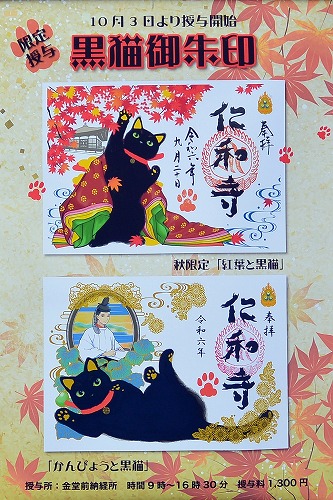 10月3日より授与開始
限定
授与
黒猫御朱印
奉拝
仁和寺
令和六年
九月二十日
秋限定「紅葉と黒猫」
奉拝
仁和寺
令和六年
「かんぴょうと黒猫」
授与所:金堂前納経所 時間9時~16時30分 授与料1,300円